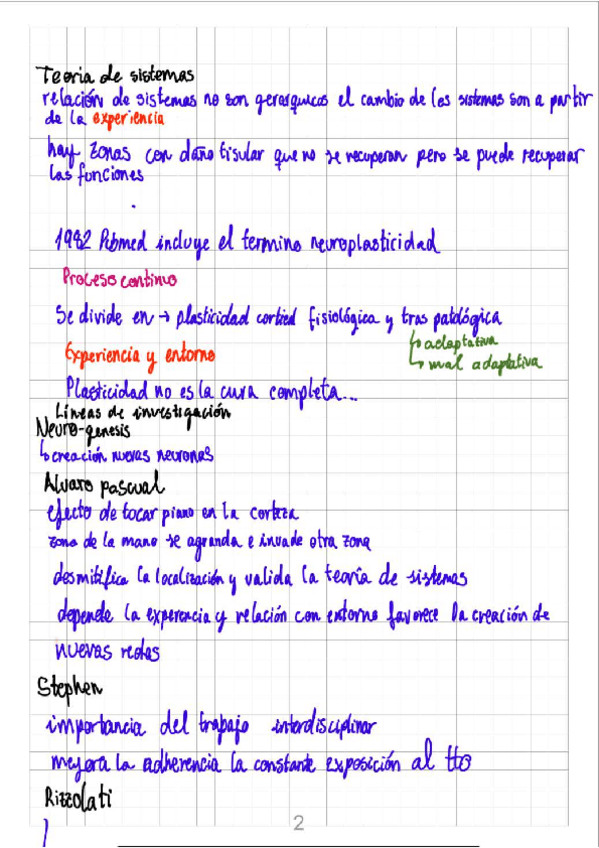 Teoria de sistemas
relación de sistemas no son gerarquicos el cambio de los sistemas son a partir
de la experiencia
hay zonas con daño tisular que no se recuperan pero se puede recuperar
las funciones
1982 Pubmed incluye el termino neuroplasticidad
Proceso continuo
Se divide en → plasticidad cortical fisiológica y tras patológica
↳ adaptativa
Experiencia y entorno
↳ mal adaptativa
Plasticidad no es la cura completa...
Líneas de investigación
Neuro-genesis
↳ creación nuevas neuronas
Alvaro pascual
efecto de tocar piano en la corteza
zona de la mano se agranda e invade otra zona
desmitifica la localización y valida la teoría de sistemas
depende la experencia y relación con entorno favorece la creación de
nuevas redes
Stephen
importancia del trabajo interdisciplinar
mejora la adherencia la constante exposición al tto
Rizzolati
2